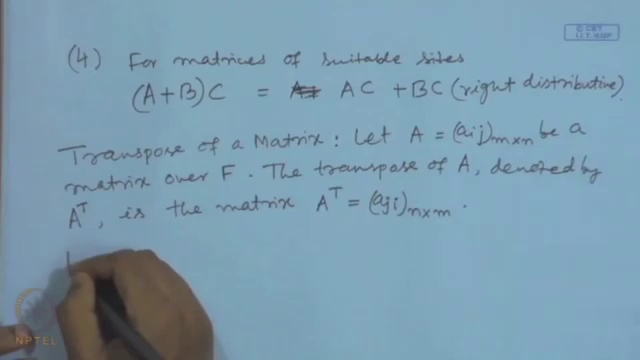 © CET
I.I.T. KGP
(4) For matrices of suitable sites
(A+B)C = AC + BC (right distributive)
Transpose of a Matrix : Let A = (aij)m×n be a
matrix over F. The transpose of A, denoted by
A^T, is the matrix A^T = (aji)n×m .
NPTEL